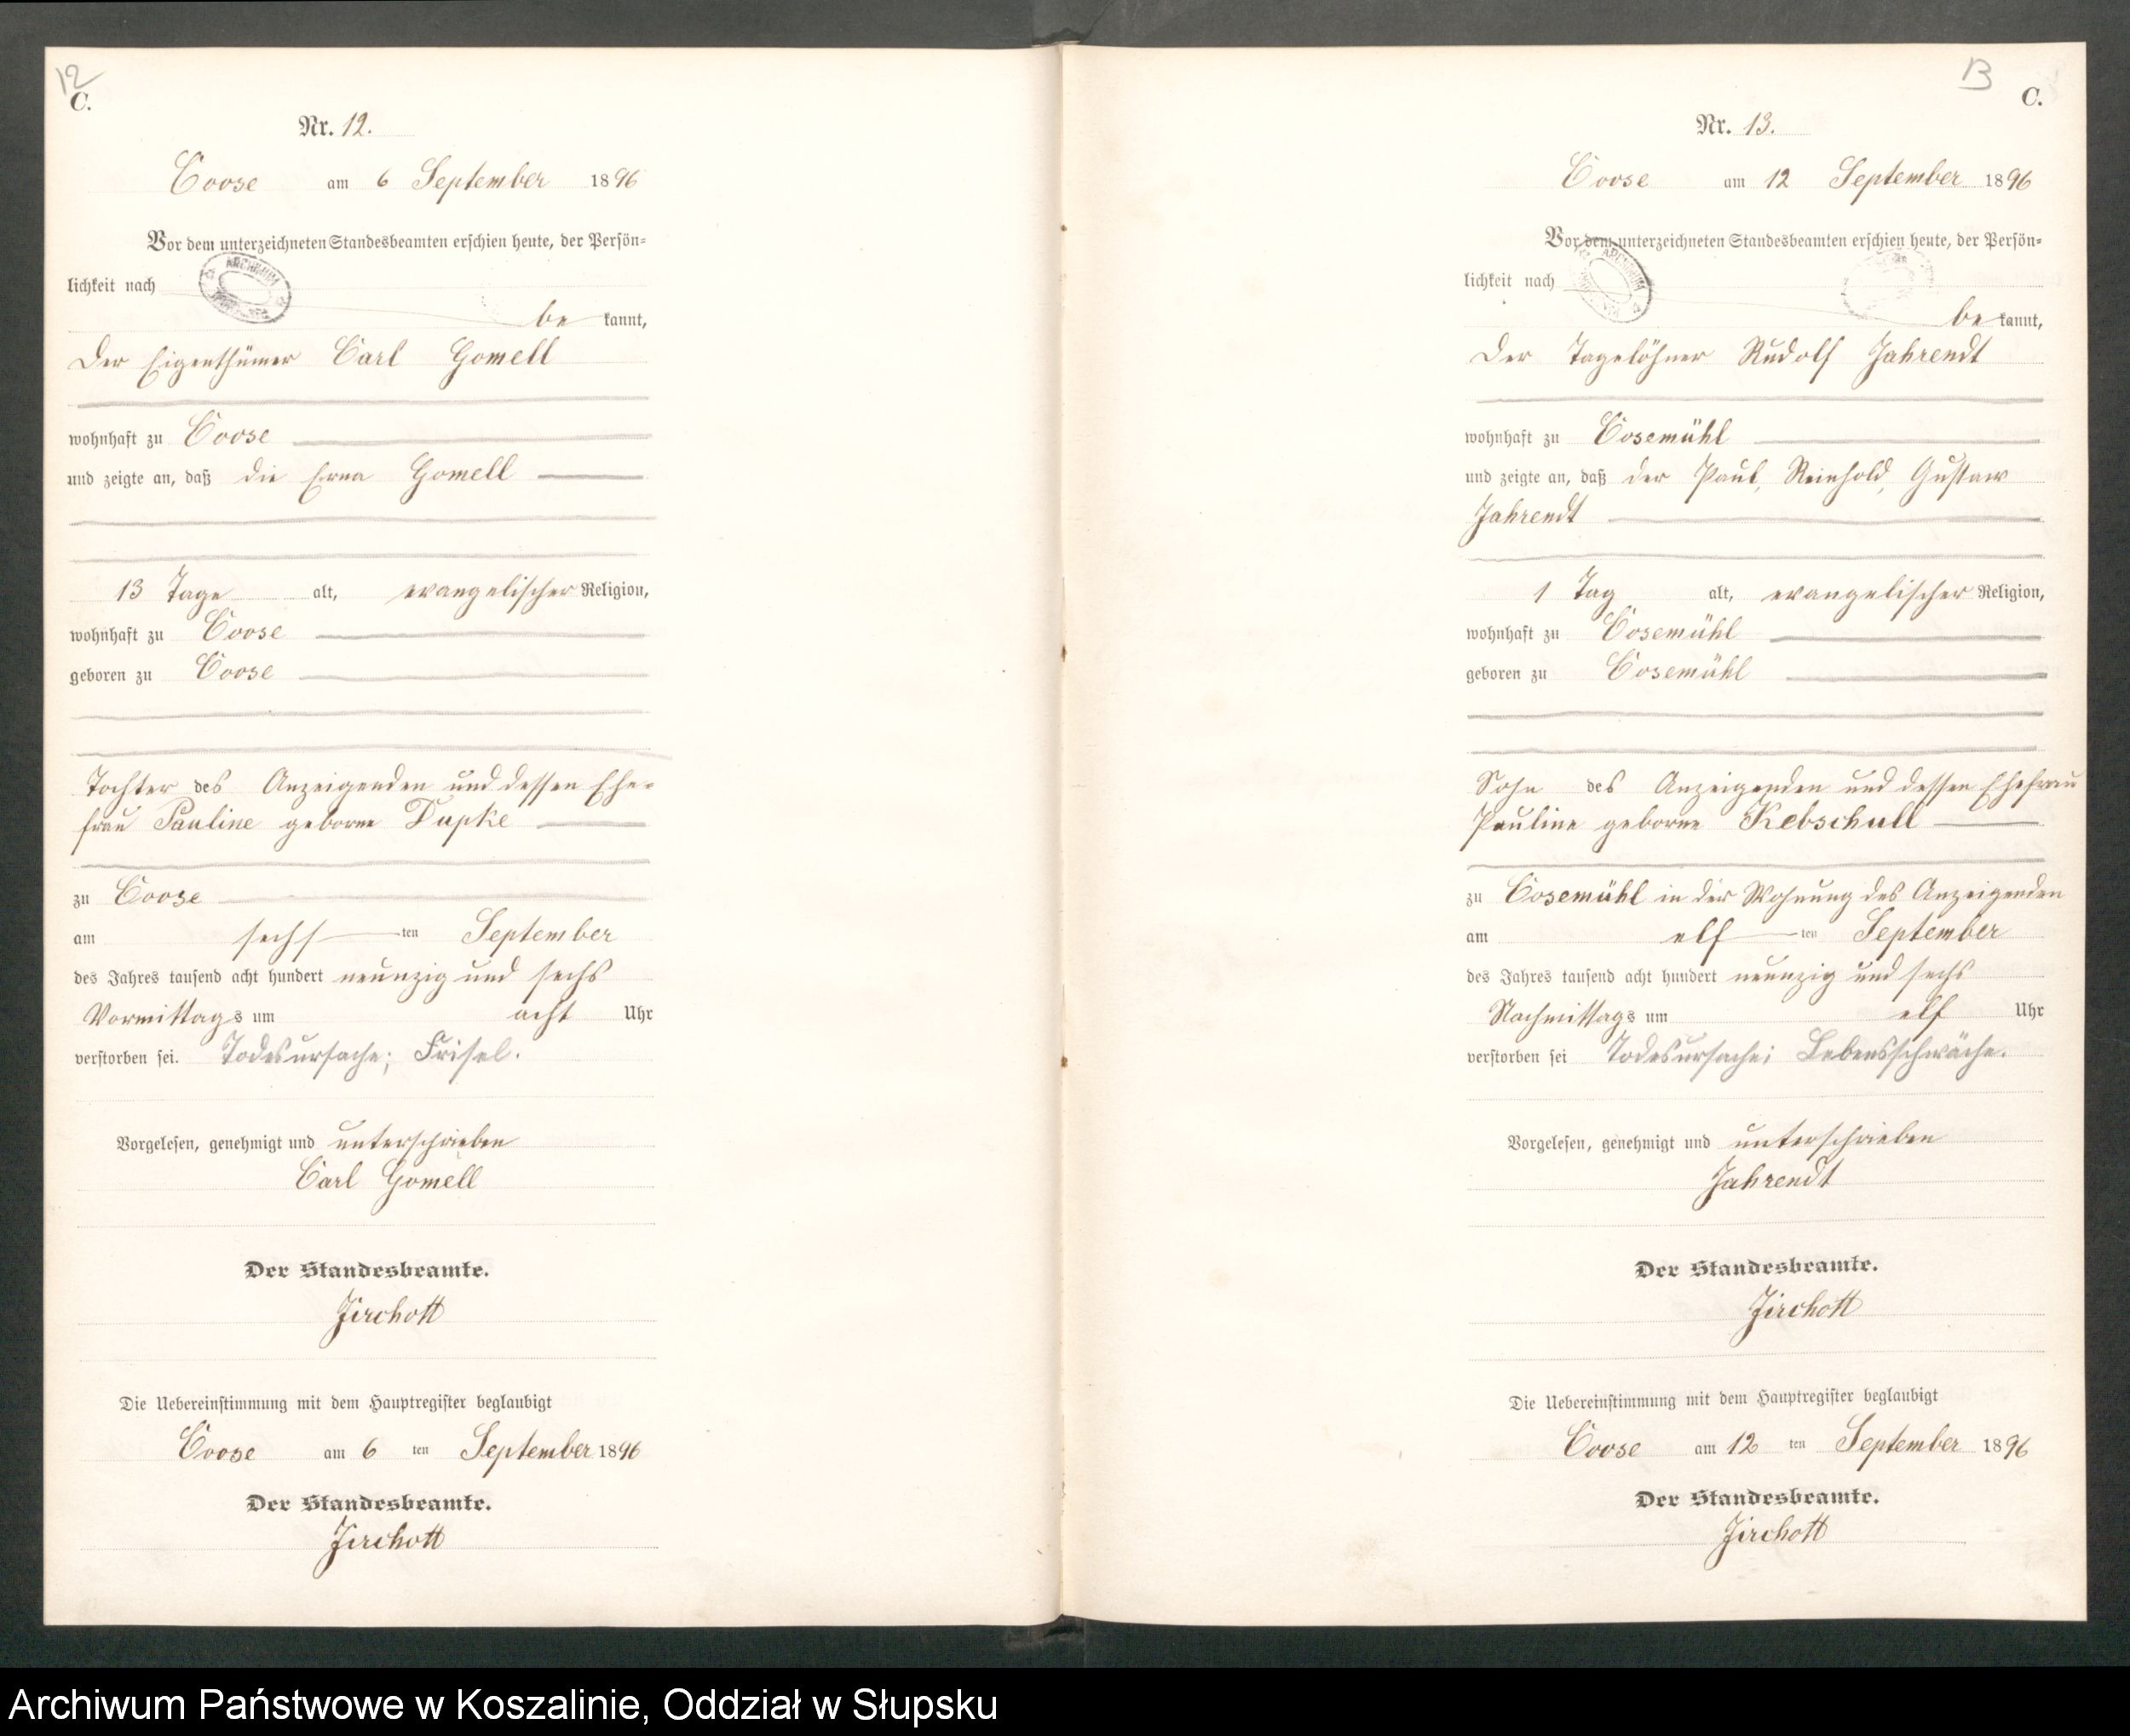 12
C.
Nr. 12.
Coose am 6 September 1896
Vor dem unterzeichneten Standesbeamten erschien heute, der Persön-
lichkeit nach
be kannt,
Der Eigenthümer Carl Gomell
wohnhaft zu Coose
und zeigte an, daß die Erna Gomell
13 Tage alt, evangelischer Religion,
wohnhaft zu Coose
geboren zu Coose
Tochter des Anzeigenden und dessen Ehe-
frau Pauline geborne Dupke
zu Coose
am sechs ten September
des Jahres tausend acht hundert neunzig und sechs
Vormittags um acht Uhr
verstorben sei. Todesursache; Frisel.
Vorgelesen, genehmigt und unterschrieben
Carl Gomell
Der Standesbeamte.
Jirchott
Die Uebereinstimmung mit dem Hauptregister beglaubigt
Coose am 6 ten September 1896
Der Standesbeamte.
Jirchott
13
C.
Nr. 13.
Coose am 12 September 1896
Vor dem unterzeichneten Standesbeamten erschien heute, der Persön-
lichkeit nach
be kannt,
Der Tagelöhner Rudolf Jahrendt
wohnhaft zu Cosemühl
und zeigte an, daß der Paul, Reinhold, Gustaw
Jahrendt
1 Tag alt, evangelischer Religion,
wohnhaft zu Cosemühl
geboren zu Cosemühl
Sohn des Anzeigenden und dessen Ehefrau
Pauline geborne Kebschull
zu Cosemühl in der Wohnung des Anzeigenden
am elf ten September
des Jahres tausend acht hundert neunzig und sechs
Nachmittags um elf Uhr
verstorben sei Todesursache; Lebensschwäche.
Vorgelesen, genehmigt und unterschrieben
Jahrendt
Der Standesbeamte.
Jirchott
Die Uebereinstimmung mit dem Hauptregister beglaubigt
Coose am 12 ten September 1896
Der Standesbeamte.
Jirchott
Archiwum Państwowe w Koszalinie, Oddział w Słupsku